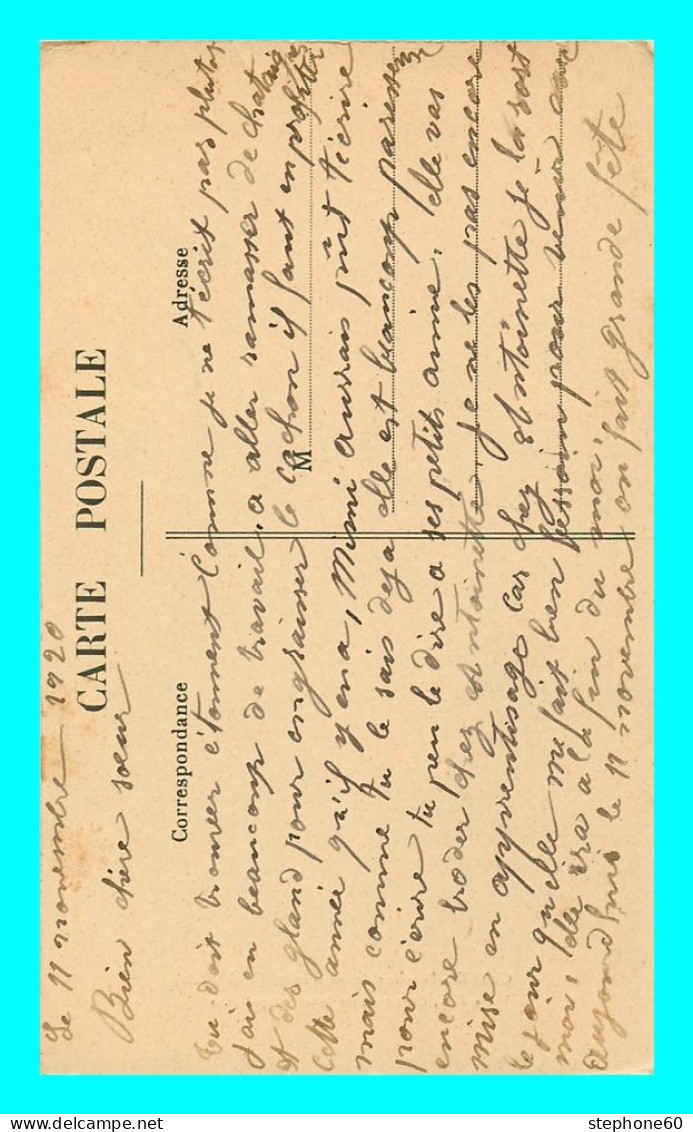 CARTE POSTALE
Correspondance
Adresse
M
Le 11 novembre 1920
Bien chère sœur
tu doit trouver étonnent comme je ne t'écrit pas plutot
j'ai en beaucoup de travail, a aller ramasser de chataigne
et des gland pour engraisser le cochon il faut en profitter
cette année qu'il y en a, Mimi aurrais pût t'écrire
mais comme tu le sais deja elle est beaucoup paresseuse
pour écrire tu peu le dire a ses petits amie, elle vas
encore broder chez Antoinette, je ne les pas encore
mise en apprentisage car chez Antoinette je la sort
le jour qu'elle me fait bien bessoin pour venir avec
moi, elle ira a la fin du moi,
Aujourd'huis le 11 novembre on fait grande fête
stephone60